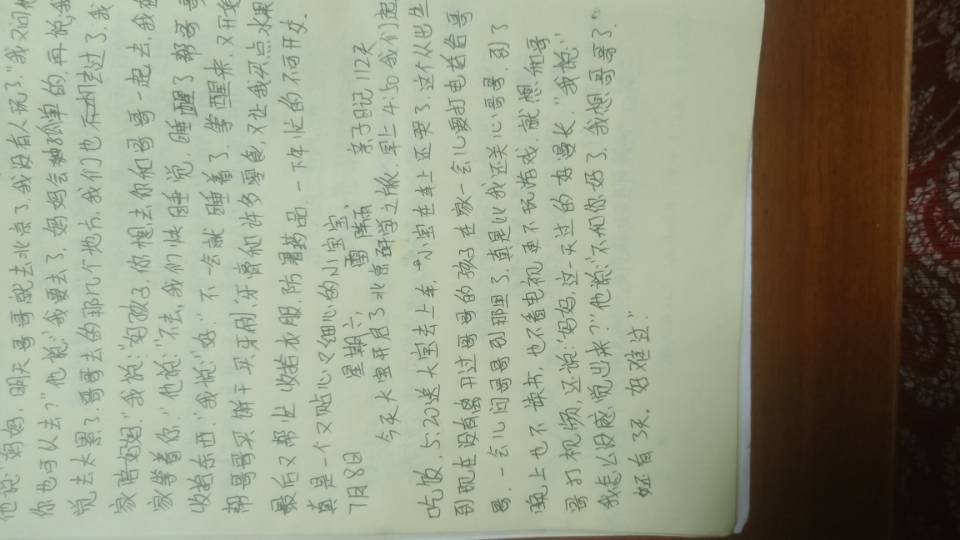 他说："妈妈，明天哥哥就去北京了，我没有人玩了。"我又问他
你也可以去？"他说："我要去了，妈妈会孤单的，再说，我
觉去太累了，哥哥去的那几个地方，我们也去过了，我
家陪妈妈。"我说："好孩子，你想去你和哥哥一起去，我在
家等着你。"他说："不去，我们快睡觉，睡醒了帮哥哥
收拾东西。"我说："好。"不一会就睡着了，等醒来，又开始
帮哥哥买饼干买牙刷，牙膏和许多零食，又让我买点水果
最后又帮忙收拾衣服，防暑药品，一下午忙的不可开交。
真是一个又贴心又细心的小宝宝，
7月8日 星期六， 雷阵雨 亲子日记112天
今天大宝开启了北京研学之旅，早上4:50我们起
吃饭，5:20送大宝去上车，小宝在车上还哭了，这个从出生
到现在没有离开过哥哥的孩子在家一会儿要打电话给哥
哥，一会儿问哥哥到那里了，真是比我还关心哥哥，到了
晚上也不读书，也不看电视更不玩游戏，就想和哥
哥打视频，还说"妈妈，这一天过的好漫长。""我说："
我怎么没感觉出来？"他说："不和你好了，我想哥哥了"
还有3天，好难过"